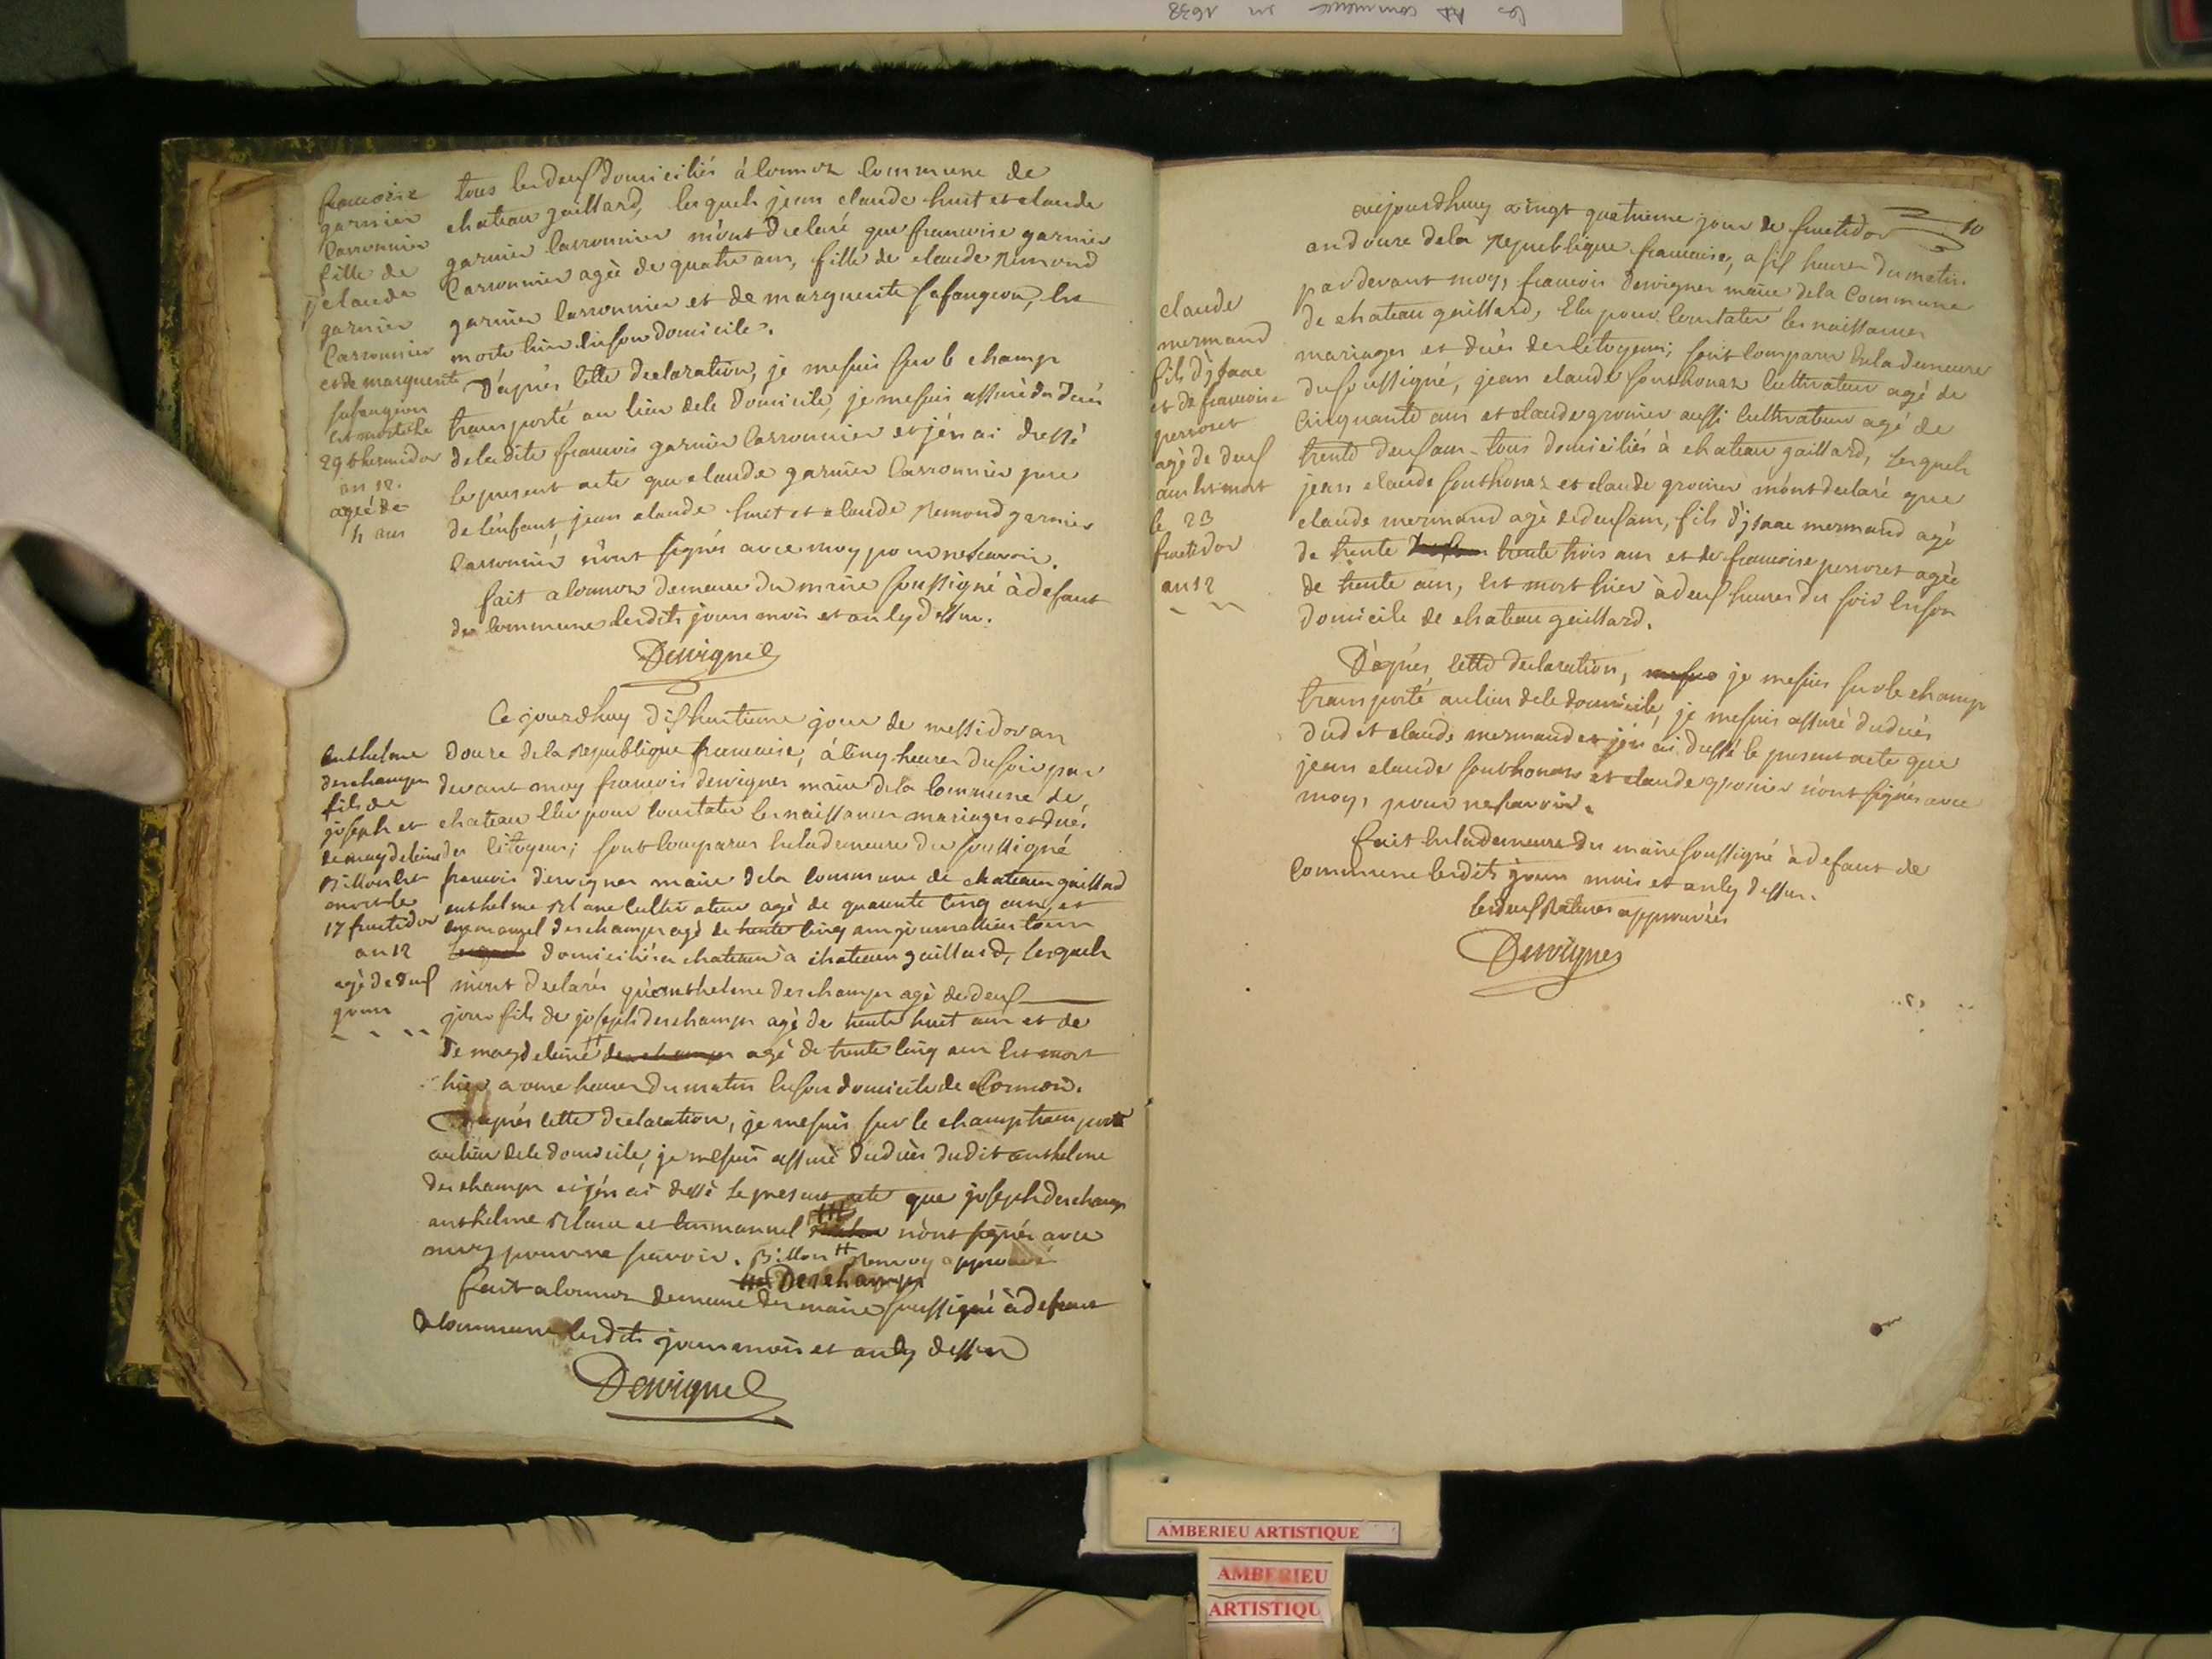 francoise
garnier
carronnier
fille de
claude
garnier
carronnier
et de marguerite
est morte le
29 thermidor
an 12.
agée de
4 ans
tous les deux domiciliés à cormoz commune de
chateau gaillard, lesquels jean claude huit et claude
garnier carronnier m'ont declaré que francoise garnier
carronnier agée de quatre ans, fille de claude remond
garnier carronnier et de marguerite, est
morte hier en son domicile.
D'aprés cette declaration, je me suis sur le champ
transporté au lieu de ce domicile, je me suis assuré du décés
de ladite francois garnier carronnier et j'en ai dressé
le present acte que claude garnier carronnier pere
de l'enfant, jean claude huit et claude remond garnier
carronnier n'ont signés avec moy pour ne scavoir.
fait a cormoz demeure du maire soussigné à defaut
de commune lesdits jour mois et an cy dessus.
Dervignes
Ce jourdhuy dix huitieme jour de messidor an
douze de la republique francaise, à cinq heures du soir par
devant moy francois dervignes maire de la commune de
chateau elu pour constater les naissances mariages et décés
des citoyens; sont comparus en la demeure du soussigné
francois dervignes maire de la commune de chateau gaillard
anthelme blanc cultivateur agé de quarante cinq ans et
emmanuel deschamps agé de trente cinq ans journallier tous
domiciliés a chateau à chateau gaillard, lesquels
m'ont declarés qu'anthelme deschamps agé de deux
jour fils de joseph deschamps agé de trente huit ans et de
de magdeleine # deschamps agé de trente cinq ans est mort
hier a onze heures du matin en son domicile de Cormoz.
D'aprés cette declaration, je me suis sur le champ transporté
au lieu de ce domicile, je me suis assuré du décés dudit anthelme
deschamps et j'en ai dressé le present acte que joseph deschamps
anthelme blanc et emmanuel n'ont signés avec
moy pour ne scavoir. Billon # renvoy approuvé
Deschamps
fait a cormoz demeure du maire soussigné à defaut
de commune lesdits jour mois et an cy dessus
Dervignes
anthelme
deschamps
fils de
joseph et
de magdeleine
Billon est
mort le
17 fructidor
an 12
agé de deux
jours
10
aujourdhuy vingt quatrieme jour de fructidor
an douze de la republique francaise, a six heures du matin
par devant moy, francois dervignes maire de la Commune
de chateau gaillard, Elu pour constater les naissances
mariages et décés des citoyens; sont comparus en la demeure
du soussigné, jean claude southonax cultivateur agé de
cinquante ans et claude grosier aussi cultivateur agé de
trente deux ans tous domiciliés à chateau gaillard, lesquels
jean claude southonax et claude grosier m'ont declaré que
claude mermand agé de deux ans, fils d'jsaac mermand agé
de trente trente trois ans et de francoise perroset agée
de trente ans, est mort hier à deux heures du soir en son
domicile de chateau gaillard.
D'aprés cette declaration, je me suis sur le champ
transporté au lieu de ce domicile, je me suis assuré du décés
dudit claude mermand et j'en ai dressé le present acte que
jean claude southonax et claude grosier n'ont signés avec
moy, pour ne scavoir.
fait en la demeure du maire soussigné à defaut de
commune lesdits jours mois et an cy dessus.
les deux ratures approuvées
Dervignes
claude
mermand
fils d'jsaac
et de francoise
perroset
agé de deux
ans est mort
le 23
fructidor
an 12
AMBERIEU ARTISTIQUE
AMBERIEU
ARTISTIQU